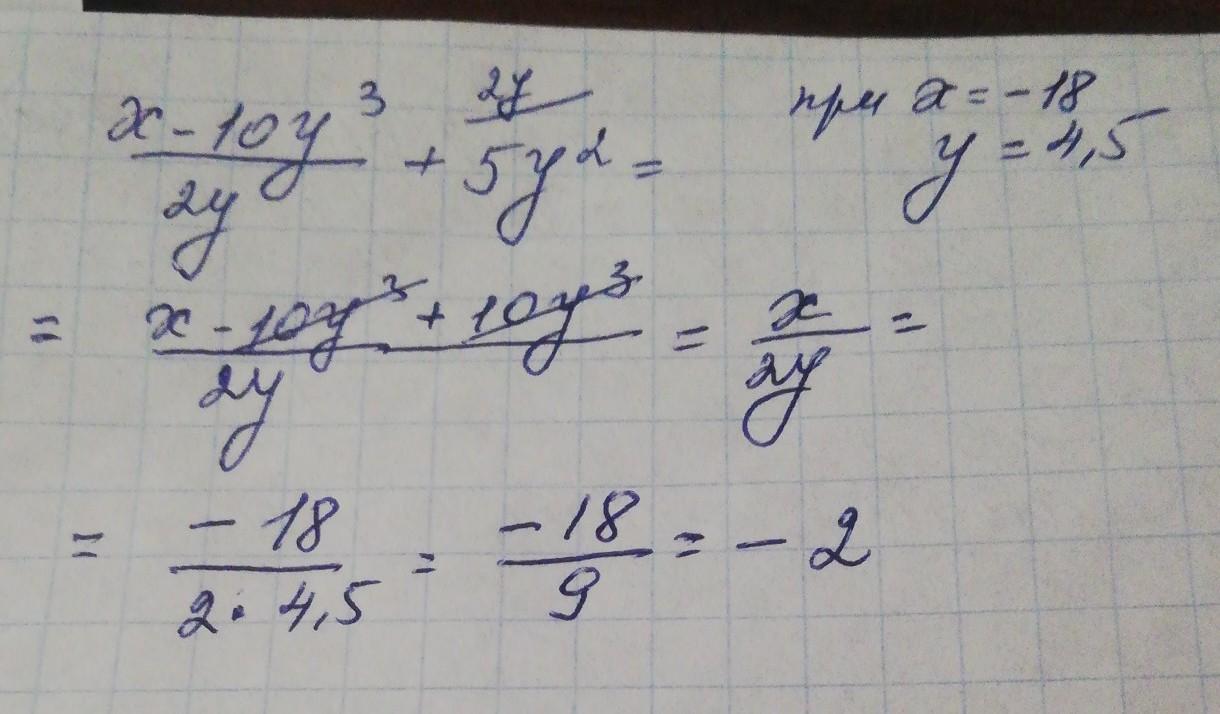 (x - 10y³)/(2y) + 5y² ^(2y) = при x = -18
y = 4,5
= (x - 10y³ + 10y³)/(2y) = x/(2y) =
= (-18)/(2 · 4,5) = (-18)/9 = -2